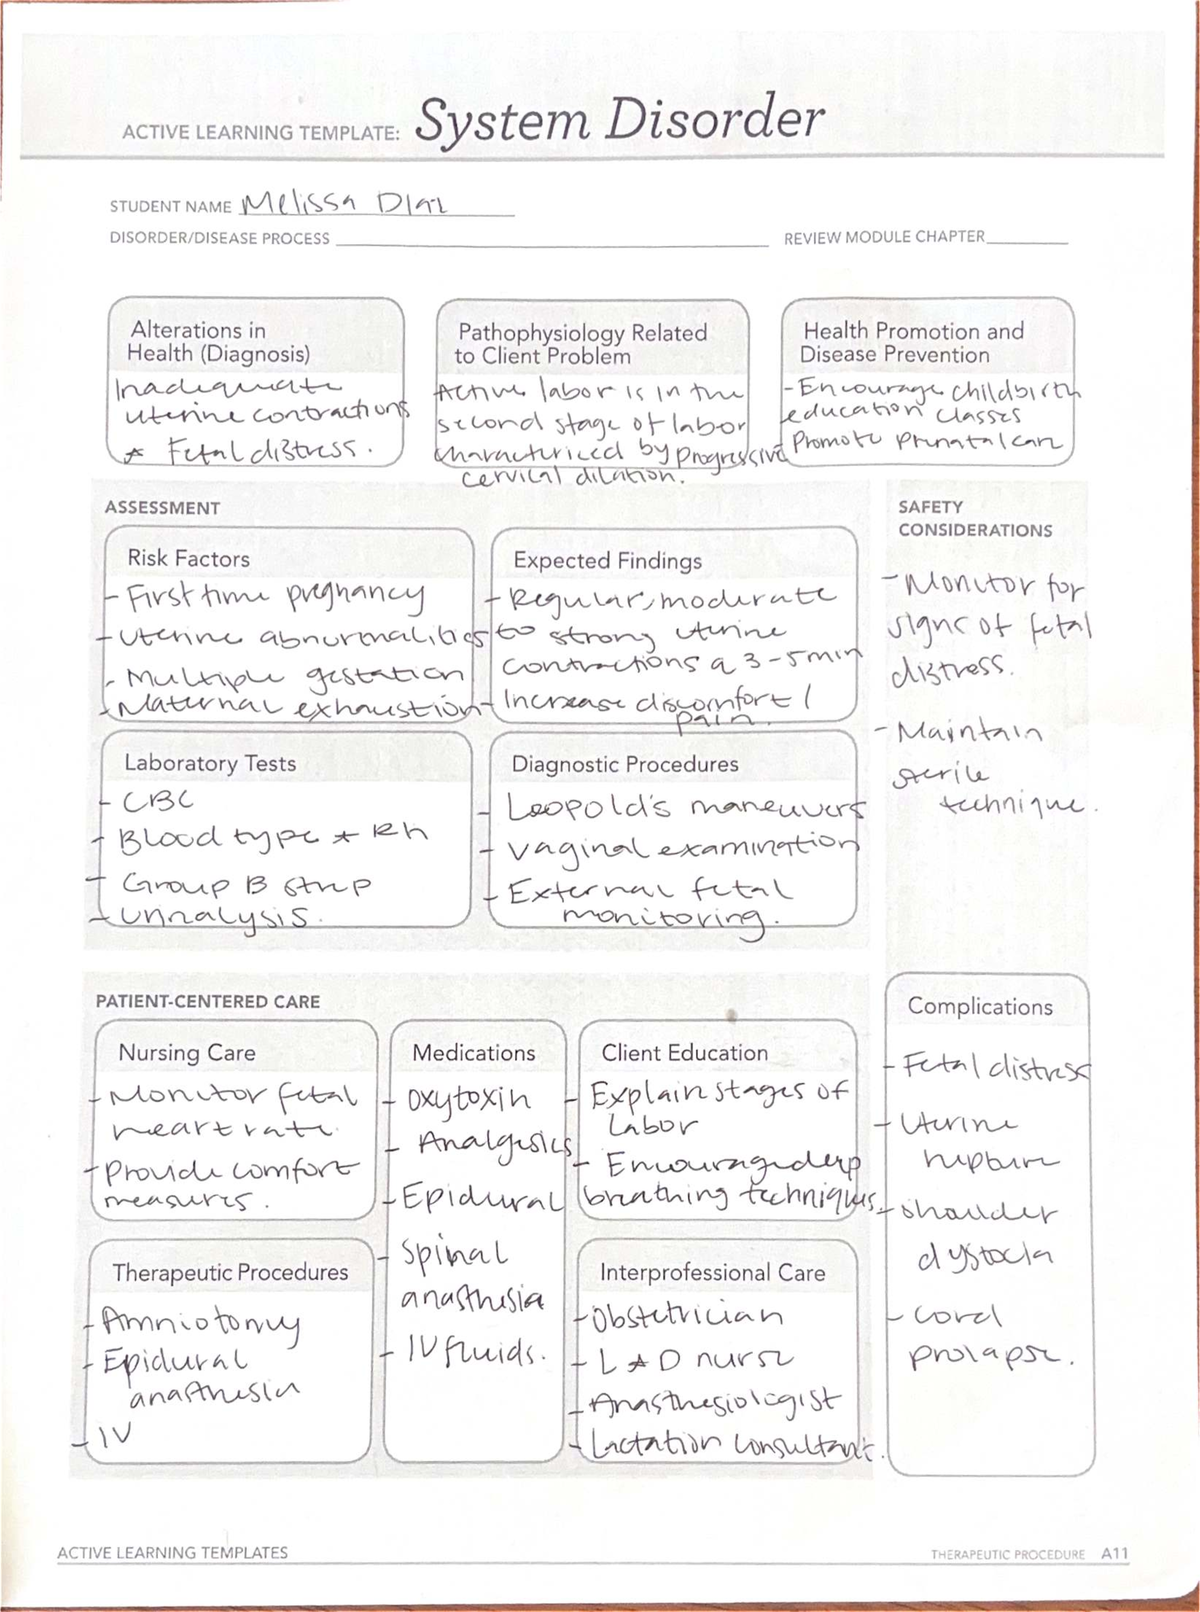 ACTIVE LEARNING TEMPLATE: System Disorder
STUDENT NAME Melissa Diaz
DISORDER/DISEASE PROCESS
REVIEW MODULE CHAPTER
Alterations in
Health (Diagnosis)
Inadequate
uterine contractions
& Fetal distress.
Pathophysiology Related
to Client Problem
Active labor is in the
second stage of labor
characterized by progressive
cervical dilation.
Health Promotion and
Disease Prevention
- Encourage childbirth
education classes
Promote prenatal care
ASSESSMENT
Risk Factors
- First time pregnancy
- Uterine abnormalities
- Multiple gestation
- Maternal exhaustion
Expected Findings
- Regular, moderate
to strong uterine
contractions q 3-5 min
- Increase discomfort /
pain.
Laboratory Tests
- CBC
- Blood type & Rh
- Group B strep
- Urinalysis.
Diagnostic Procedures
- Leopold's maneuvers
- vaginal examination
- External fetal
monitoring.
SAFETY
CONSIDERATIONS
- Monitor for
signs of fetal
distress.
- Maintain
sterile
technique.
PATIENT-CENTERED CARE
Nursing Care
- Monitor fetal
heart rate.
- Provide comfort
measures.
Medications
- oxytoxin
- Analgesics
- Epidural
- Spinal
anasthesia
- IV fluids.
Client Education
- Explain stages of
labor
- Encourage deep
breathing techniques.
Therapeutic Procedures
- Amniotomy
- Epidural
anasthesia
- IV
Interprofessional Care
- Obstetrician
- L & D nurse
- Anasthesiologist
- Lactation consultant.
Complications
- Fetal distress
- Uterine
rupture
- Shoulder
dystocia
- Cord
prolapse.
ACTIVE LEARNING TEMPLATES
THERAPEUTIC PROCEDURE A11